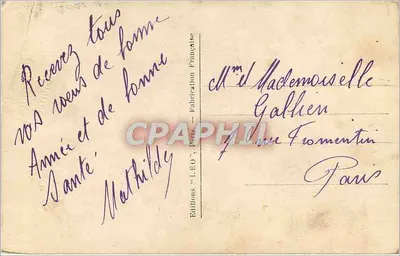 Recevez tous
vos voeux de bonne
Année et de bonne
Santé
Mathilde
Editions "LEO" Paris - Fabrication Française
Mme et Mademoiselle
Gallien
7 rue Fromentin
Paris
CPARAMA